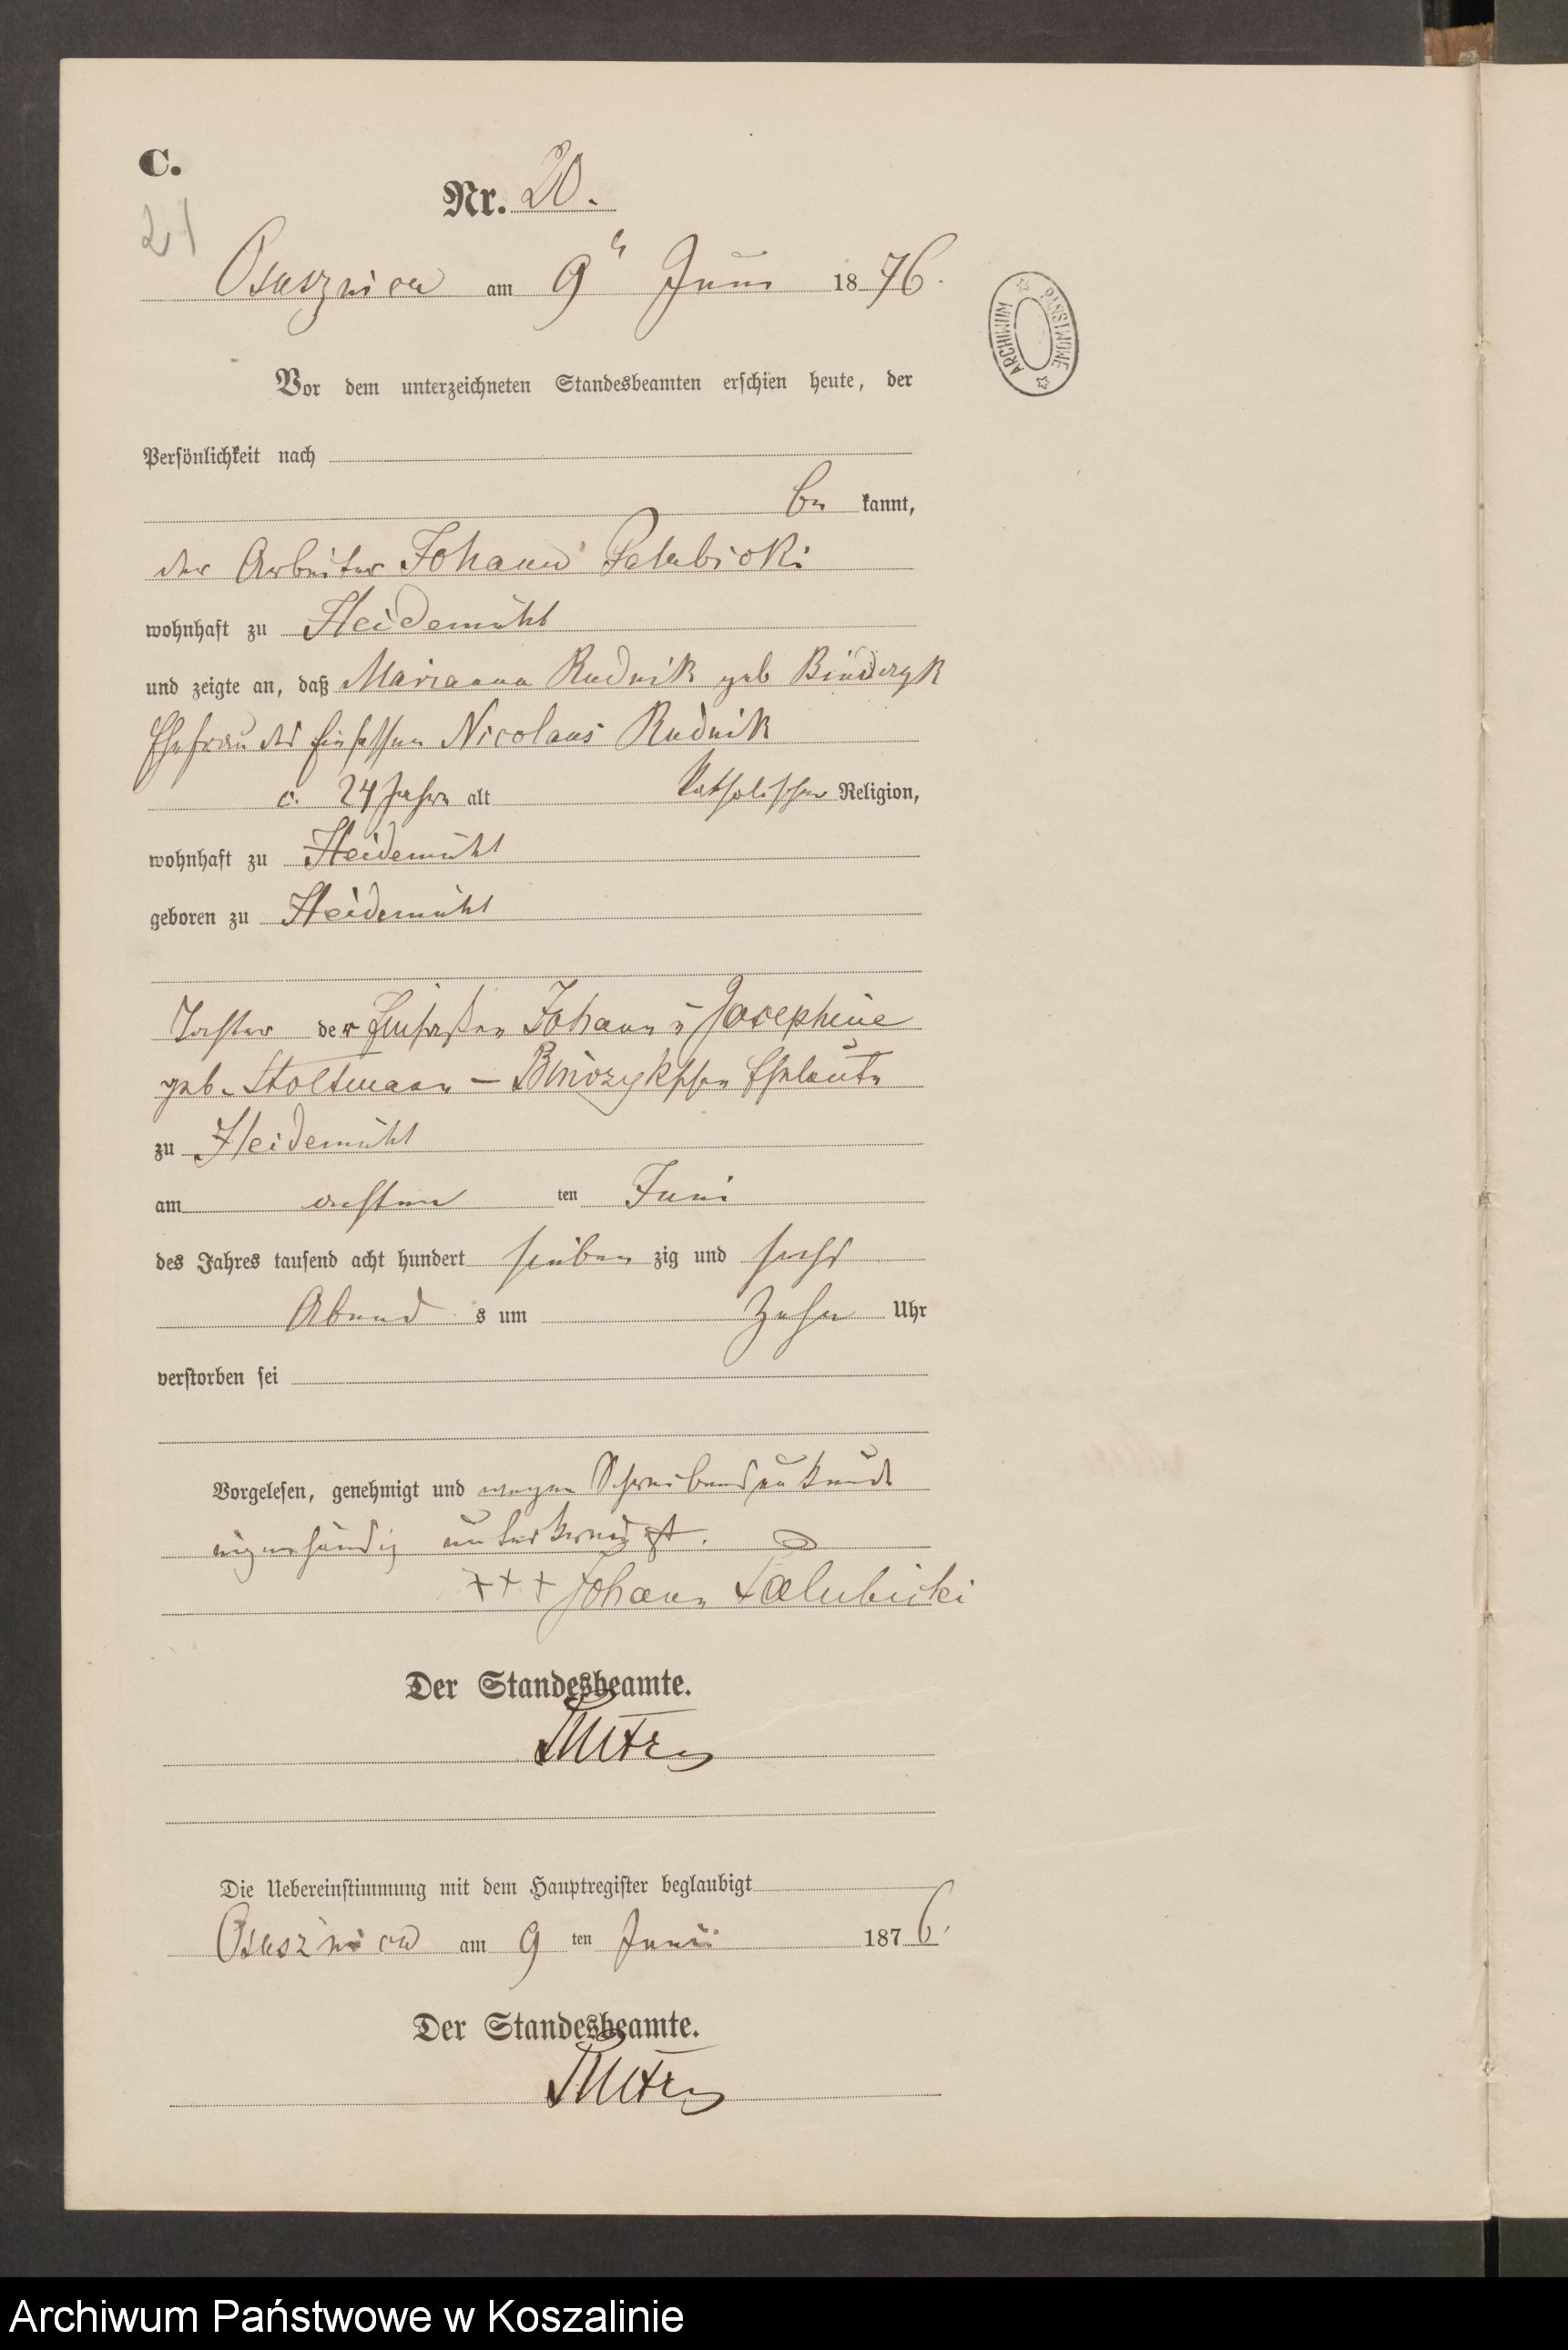 C.
21
Nr. 20.
Osusznica am 9ten Juni 1876.
ARCHIWUM PAŃSTWOWE
Vor dem unterzeichneten Standesbeamten erschien heute, der
Persönlichkeit nach
be kannt,
der Arbeiter Johann Palubicki
wohnhaft zu Heidemühl
und zeigte an, daß Marianna Rudnik geb
Ehefrau des Einsassen Nicolaus Rudnik
c. 24 Jahre alt katholischer Religion,
wohnhaft zu Heidemühl
geboren zu Heidemühl
Tochter der Einsaßen Johann u Josephine
geb. Stoltmann – Eheleute
zu Heidemühl
am achten ten Juni
des Jahres tausend acht hundert sieben zig und sechs
Abend s um Zehn Uhr
verstorben sei
Vorgelesen, genehmigt und wegen Schreibensunkunde
eigenhändig unterkreuzt.
+++ Johann Palubicki
Der Standesbeamte.
Die Uebereinstimmung mit dem Hauptregister beglaubigt
Osusznica am 9 ten Juni 1876.
Der Standesbeamte.
Archiwum Państwowe w Koszalinie